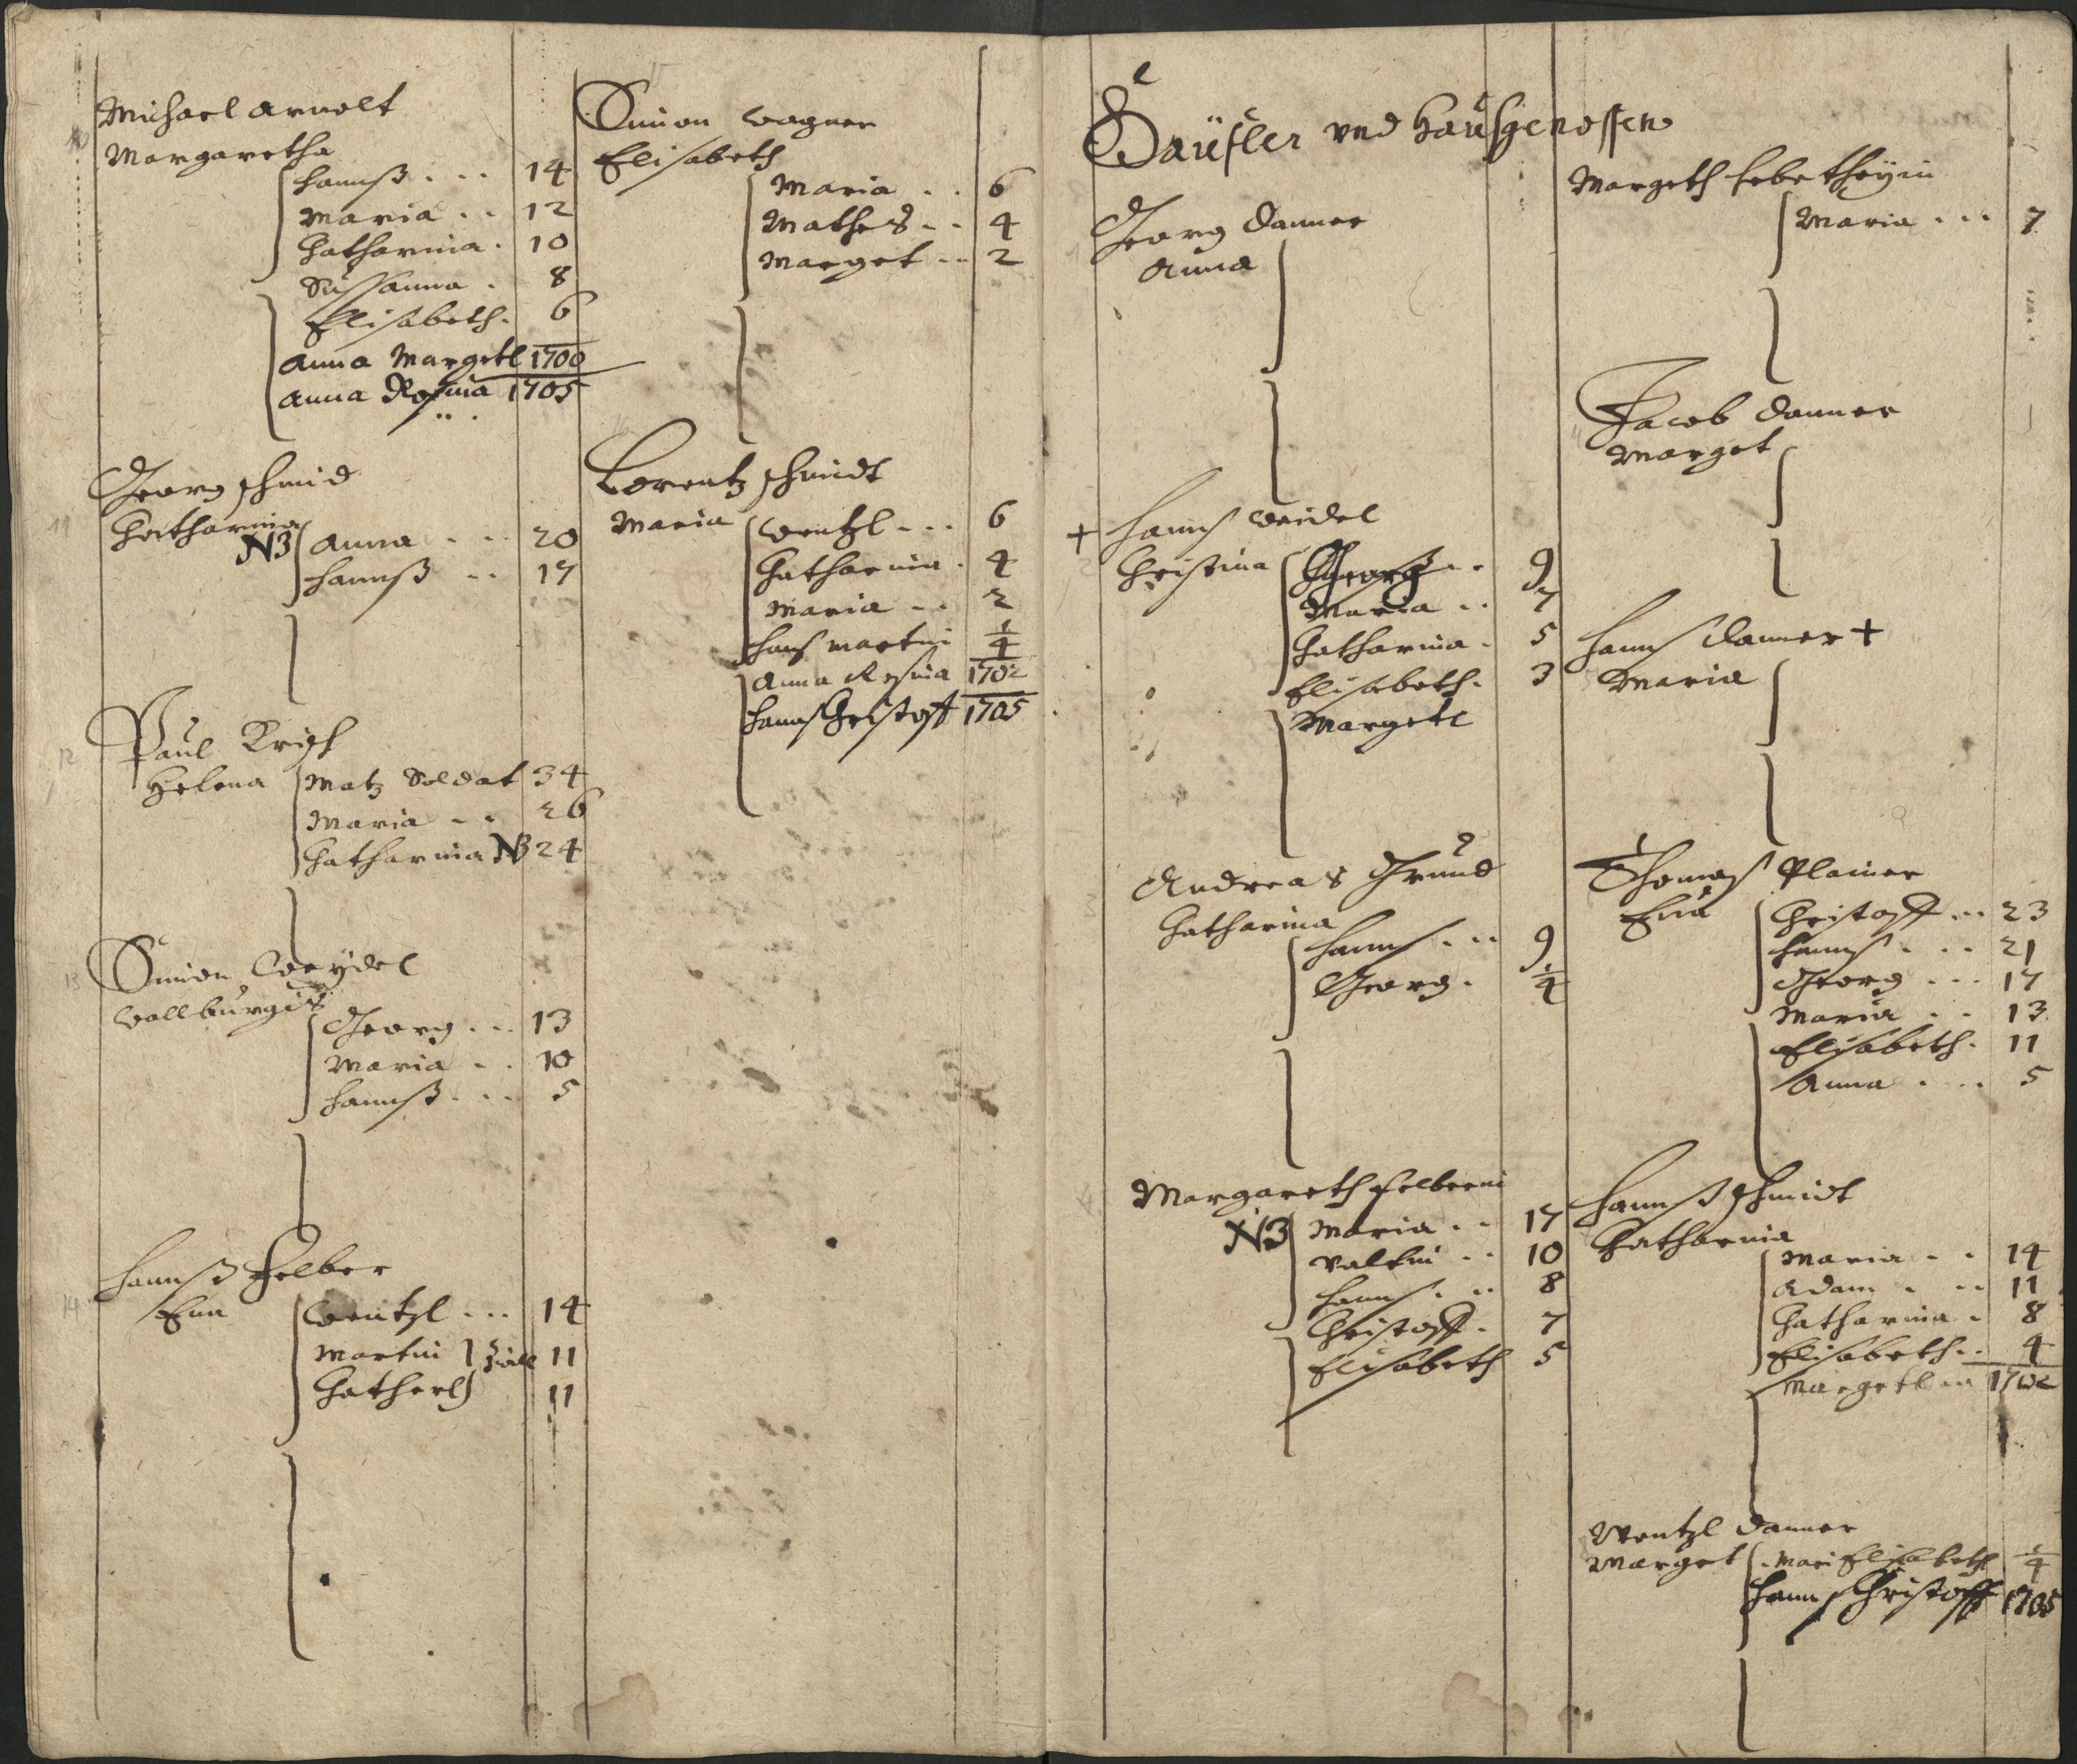 Michael Arnolt
Margaretha
Hannß . . . 14
Maria . . 12
Catharina . 10
Sussanna . 8
Elisabeth . 6
Anna Margetl 1700
Anna Rosina 1705
11
Georg Schmid
Catharina
NB Anna . . . 20
Hannß . . 17
12
Paul Krisch
Helena Matz Soldat 34
Maria . . 26
Catharina NB 24
13
Simon Weydel
Wallburgis
Georg . . . 13
Maria . . 10
Hannß . . . 5
14
Hannß Felber
Eua Wentzl . . . 14
Martin 11
Catherl 11
15
Simon Wagner
Elisabeth
Maria . . 6
Mathes . . 4
Marget . . 2
Lorentz Schmidt
Maria Wentzl . . . 6
Catharina . 4
Maria . . 2
Hanß Martin 1/4
Anna Rosina 1702
Hannß Christoff 1705
Häußler vnd Haußgenossen
Georg Danner
Anna
+ Hannß Weidel
Christina Georg . . 9
Maria . . 7
Catharina . 5
Elisabeth . 3
Margetl
Andreas Grund
Catharina
Hannß . . . 9
Georg . 1/4
Margareth Felberin
NB Maria . . 17
Valtin . . 10
Hannß . . . 8
Christoff . 7
Elisabeth 5
Margeth
Maria . . . 7
Jacob Danner
Marget
Hannß Danner +
Maria
Thomas Plainer
Eua Christoff . . . 23
Hannß . . . 21
Georg . . . 17
Maria . . 13
Elisabeth . 11
Anna . . . 5
Hannß Schmidt
Catharina
Maria . . 14
Adam . . . 11
Catharina . 8
Elisabeth . . 4
Margetl 1702
Wentzl Danner
Marget Mari Elisabeth 1/4
Hannß Christoff 1705